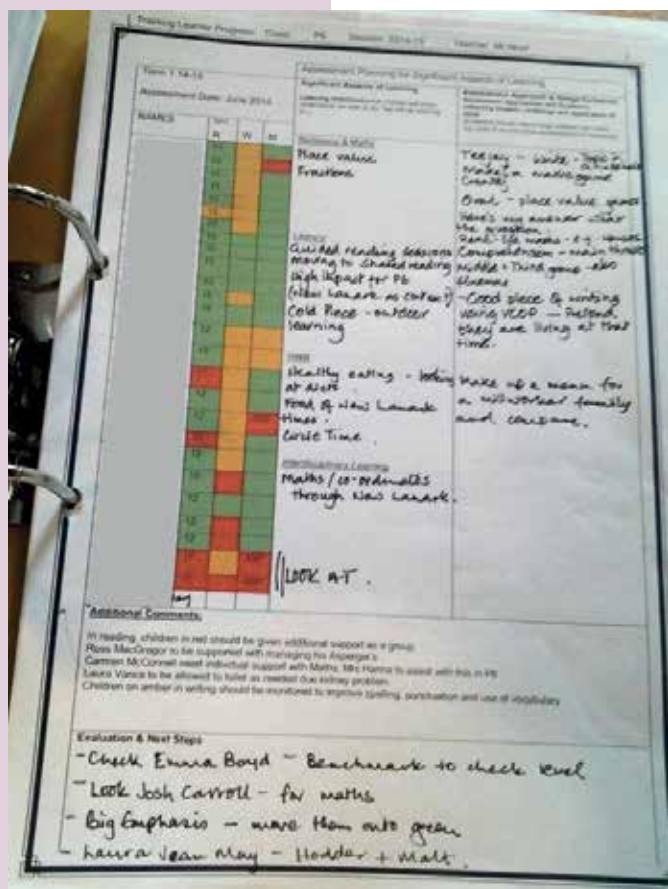 Tracking Learner Progress Class: P6 Session: 2014-15 Teacher:
Term 1 14-15
Assessment Planning for Significant Aspects of Learning
Assessment Date: June 2014
Significant Aspects of Learning
NAMES
R W M
Numeracy & Maths
Place value
Fractions
Literacy
Guided reading sessions
moving to shared reading
high impact for P6
(New Lanark as context)
Cold Piece - outdoor
learning
HWB
Healthy eating - looking
at diets
Food of New Lanark
times.
Circle Time.
Interdisciplinary Learning
Maths / co-ordinates
through New Lanark.
LOOK AT.
Teejay - write - topic
Make a maths game
Oral - place value games
Here's my answer what
the question
Real-life maths - e.g.
Comprehension - main thrust
Middle + Third group - also
-Good piece of writing
using VCOP - Pretend
they are living at that
time.
Make up a menu for
a millworker family
and compare.
Additional Comments:
In reading, children in red should be given additional support as a group
Ross MacGregor to be supported with managing his Asperger's
Carmen McConnell need individual support with Maths, Mrs Hanna to assist with this in P6
Laura Vance to be allowed to toilet as needed due kidney problem
Children on amber in writing should be monitored to improve spelling, punctuation and use of vocabulary
Evaluation & Next Steps
- Check Emma Boyd - Benchmark to check level
- Look Josh Carroll - for maths
- Big Emphasis - move them onto green
- Laura Jean May - Hodder + Malt.